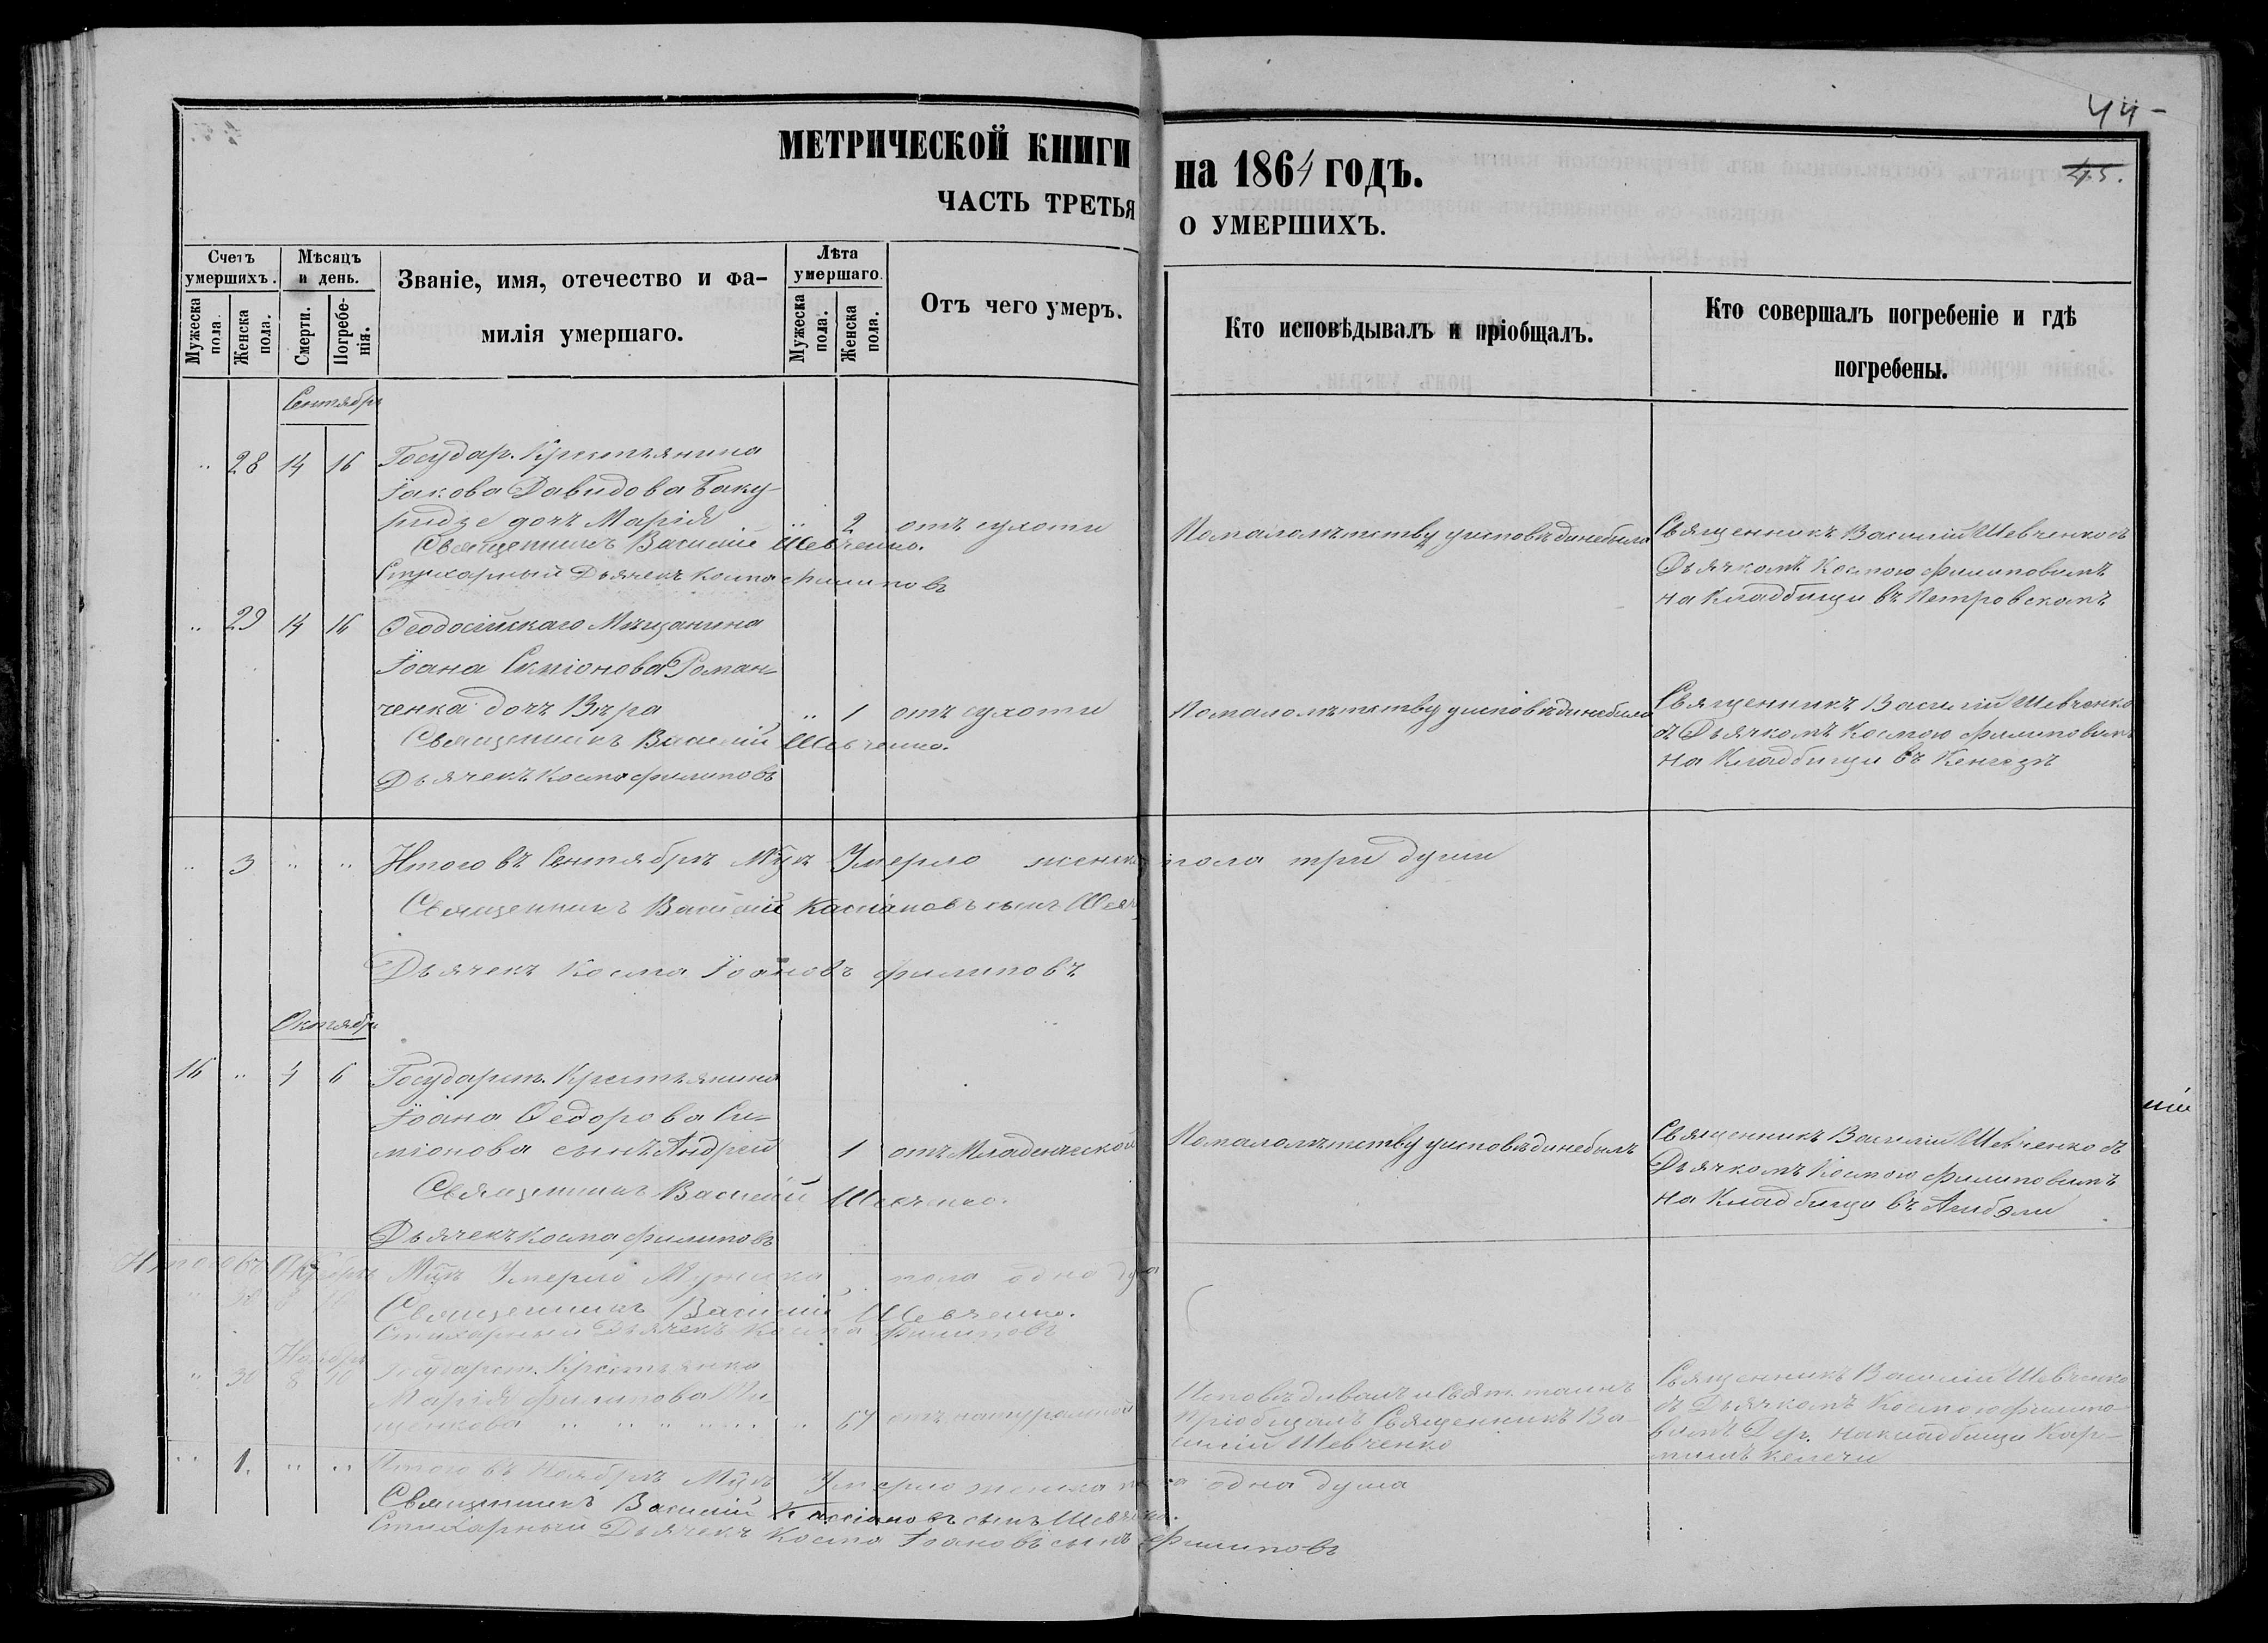 44-
45.
МЕТРИЧЕСКОЙ КНИГИ на 1864 ГОДЪ.
ЧАСТЬ ТРЕТЬЯ О УМЕРШИХЪ.
Счетъ умершихъ.
Мужеска пола.
Женска пола.
Мѣсяцъ и день.
Смерти.
Погребенія.
Званіе, имя, отечество и фамилія умершаго.
Лѣта умершаго.
Мужеска пола.
Женска пола.
Отъ чего умеръ.
Кто исповѣдывалъ и пріобщалъ.
Кто совершалъ погребеніе и гдѣ
погребены.
Сентябрь
.. 28 14 16 Государ. Крестьянина
Іакова Давидова Баку-
ридзе дочь Марія .. 2 отъ сухоти
Священникъ Василій Шевченко.
Стихарный Дьячекъ Косма Филиповъ
По малолѣтству у исповѣди не была
Священникъ Василій Шевченко съ
Дьячкомъ Космою Филиповимъ
на Кладбищи въ Петровскомъ
.. 29 14 16 Ѳеодосійскаго Мѣщанина
Іоана Симіонова Роман-
ченка дочь Вѣра .. 1 отъ сухоти
Священникъ Василій Шевченко.
Дьячекъ Косма Филиповъ
По малолѣтству у исповѣди не была
Священникъ Василій Шевченко
съ Дьячкомъ Космою Филиповимъ
на Кладбищи въ
.. 3 .. .. Итого въ Сентябрѣ М-цѣ Умерло женска пола три души
Священникъ Василій Кассіановъ сынъ
Дьячекъ Косма Іоановъ Филиповъ
Октябрь
16 .. 4 6 Государст. Крестьянина
Іоана Ѳедорова Си-
міонова сынъ Андрей 1 отъ Младенческой
Священникъ Василій Шевченко.
Дьячекъ Косма Филиповъ
По малолѣтству у исповѣди не былъ
Священникъ Василій Шевченко съ
Дьячкомъ Космою Филиповимъ
на Кладбищи въ
Итого въ Октябрѣ М-цѣ Умерло Мужска пола одна душа
Священникъ Василій Шевченко.
Стихарный Дьячекъ Косма Филиповъ
Ноябрь
.. 30 8 10 Государст. Крестьянка
Марія Филипова
.. 67 отъ натуральной
Исповѣдивалъ и Свят. таинъ
Пріобщалъ Священникъ Ва-
силій Шевченко
Священникъ Василій Шевченко
съ Дьячкомъ Космою Филипо-
вимъ Дер. на кладбищи
.. 1. .. .. Итого въ Ноябрѣ М-цѣ Умерло женска пола одна душа
Священникъ Василій Кассіановъ сынъ Шевченко.
Стихарный Дьячекъ Косма Іоановъ сынъ Филиповъ